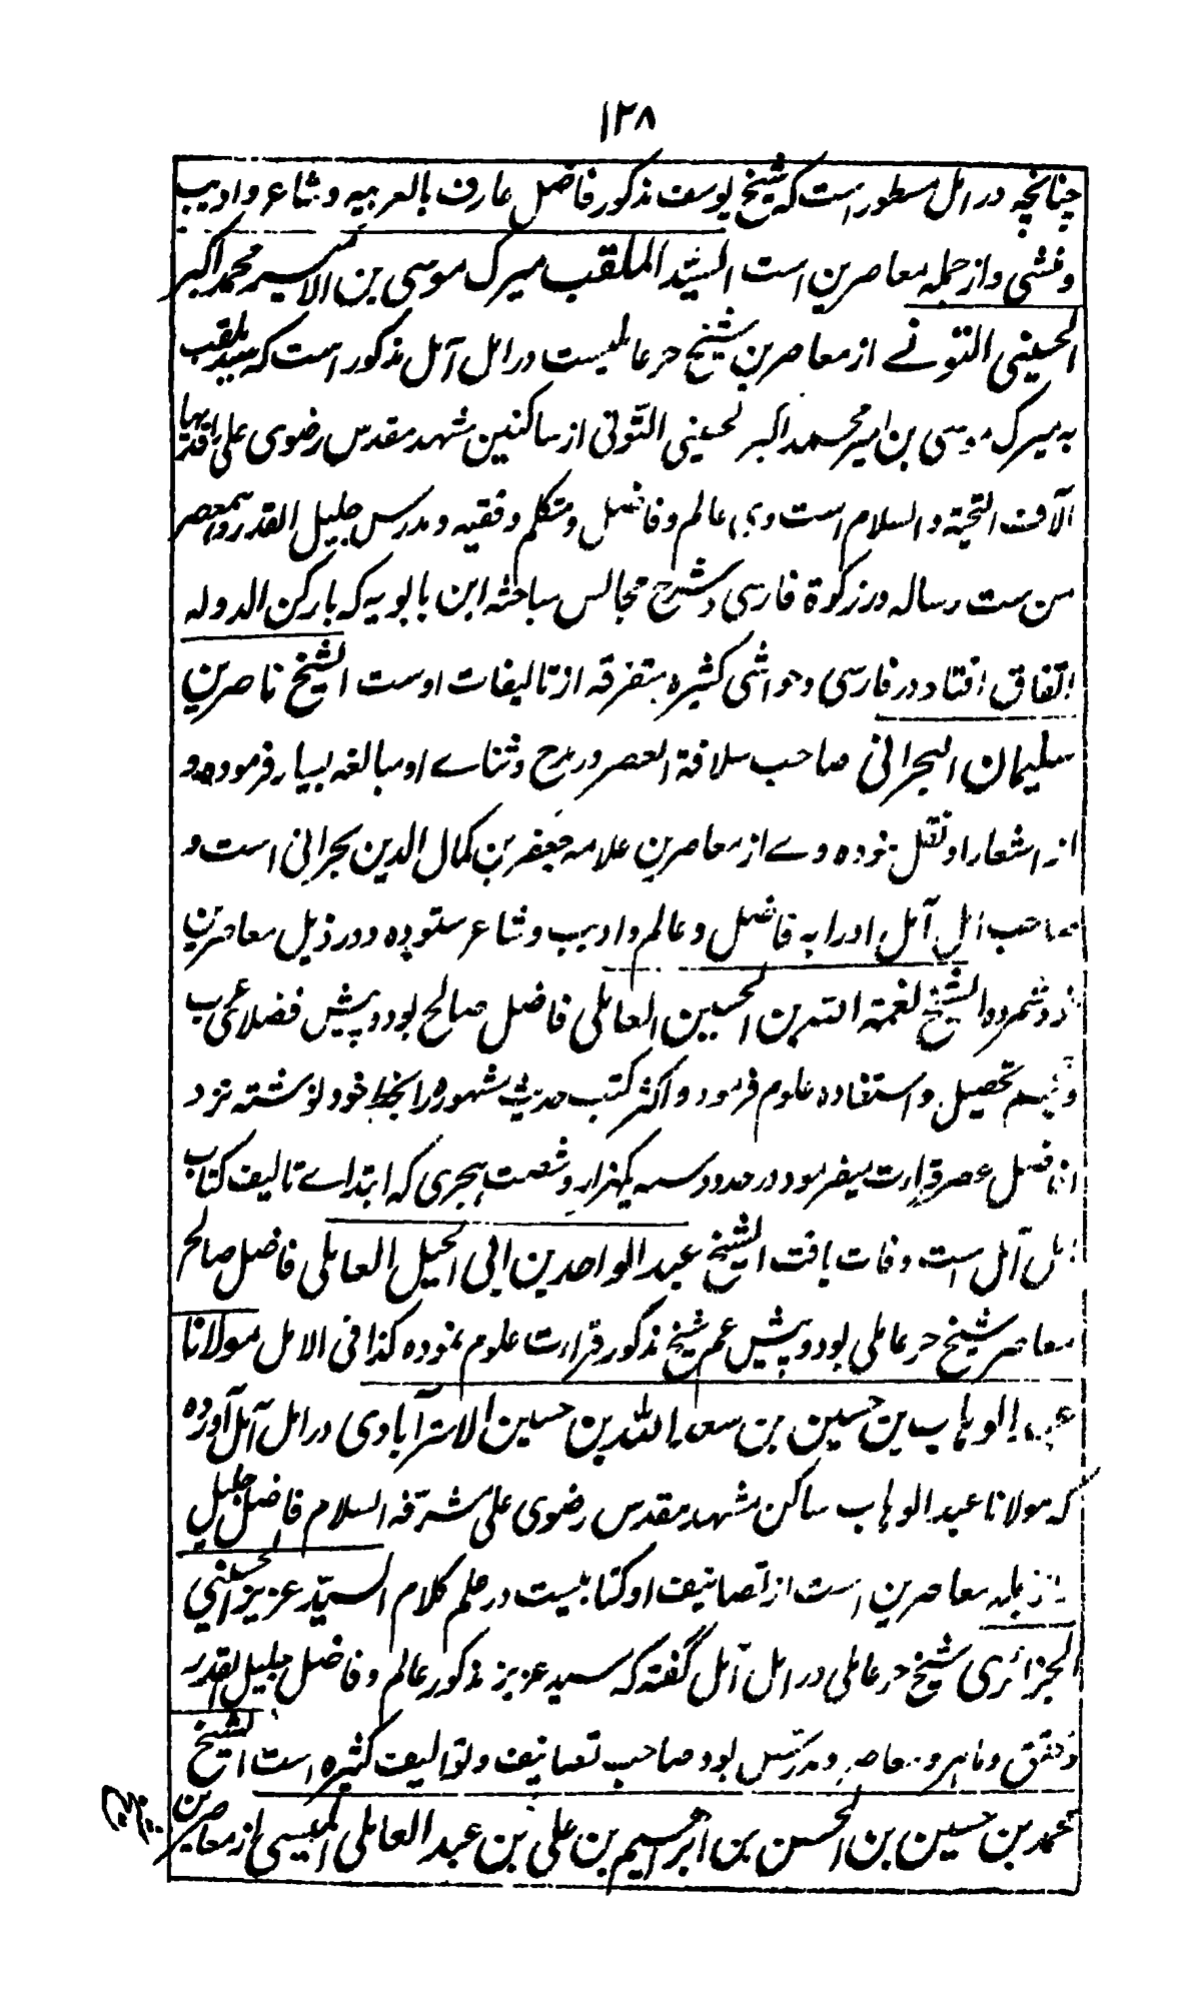 ۱۲۸
چنانچه در امل مسطور است که شیخ یوسف مذکور فاضل عارف بالعربیه و شاعر و ادیب
و منشی و از جمله معاصرین است السّید الملقب میرک موسی بن الامیر محمد اکبر
الحسینی التونے از معاصرین شیخ حر عاملیست در امل آمل مذکور است که سید ملقب
به میرک موسی بن امیر محمد اکبر الحسینی التّونی از ساکنین مشهد مقدس رضوی علی راقدیها
آلاف التحیة و السلام است وی عالم و فاضل و متکلم و فقیه و مدرس جلیل القدر و همعصر
من ست رساله در زکوة فارسی و شرح مجالس مباحثه ابن بابویه که با رکن الدوله
اتفاق افتاد در فارسی و حواشی کثیره متفرقه از تالیفات اوست الشیخ ناصر بن
سلیمان البحرانی صاحب سلافة العصر در مدح و ثناے او مبالغه بسیار فرموده و
از اشعار او نقل نموده وے از معاصرین علامه جعفر بن کمال الدین بحرانی است و
صاحب امل آمل او را به فاضل و عالم و ادیب و شاعر ستوده و در ذیل معاصرین
خود شمرده الشیخ نعمة الله بن الحسین العاملی فاضل صالح بود و پیش فضلاے عرب
و عجم تحصیل و استفاده علوم فرمود و اکثر کتب حدیث مشهوره را بخط خود نوشته نزد
افاضل عصر قرارت میفرمود در حدود سنه یکهزار و شصت هجری که ابتداے تالیف کتاب
امل آمل است وفات یافت الشیخ عبد الواحد بن ابی الجمیل العاملی فاضل صالح
معاصر شیخ حر عاملی بود و پیش عم شیخ مذکور قرارت علوم نموده کذا فی الامل مولانا
عبد الوهاب بن حسین بن سعد الله بن حسین الاسترآبادی در امل آمل آورده
که مولانا عبد الوهاب ساکن مشهد مقدس رضوی علی مشرّفه السلام فاضل جلیل
از جمله معاصرین است از تصانیف او کتابیست در علم کلام السیّد عزیز الحسینی
الجزائری شیخ حر عاملی در امل آمل گفته که سید عزیز مذکور عالم و فاضل جلیل القدر
محقق و ماهر و معاصر و مدرّس بود صاحب تصانیف و توالیف کثیره است الشیخ
محمد بن حسین بن الحسن بن ابراهیم بن علی بن عبد العالی المیسی از معاصرین